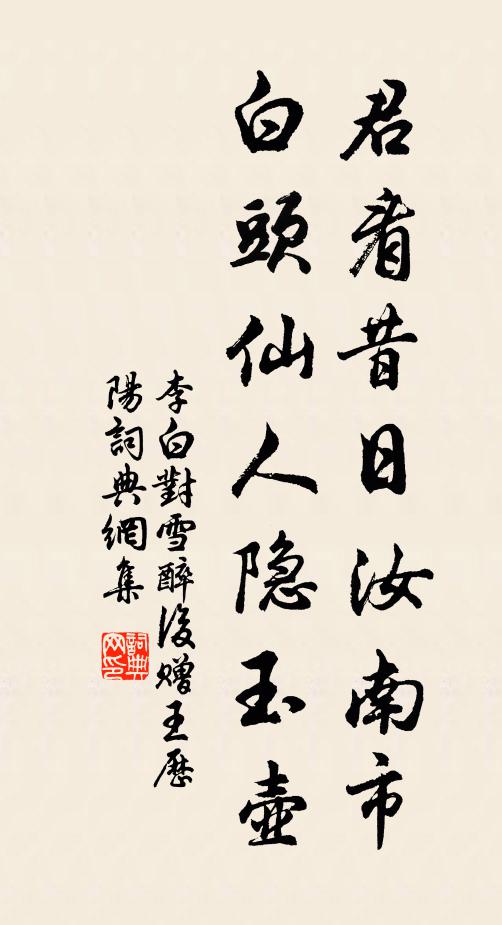 君看昔日汝南市
白頭仙人隐玉壺
李白對雪醉後赠王歷
陽詞典網集
詞典網印